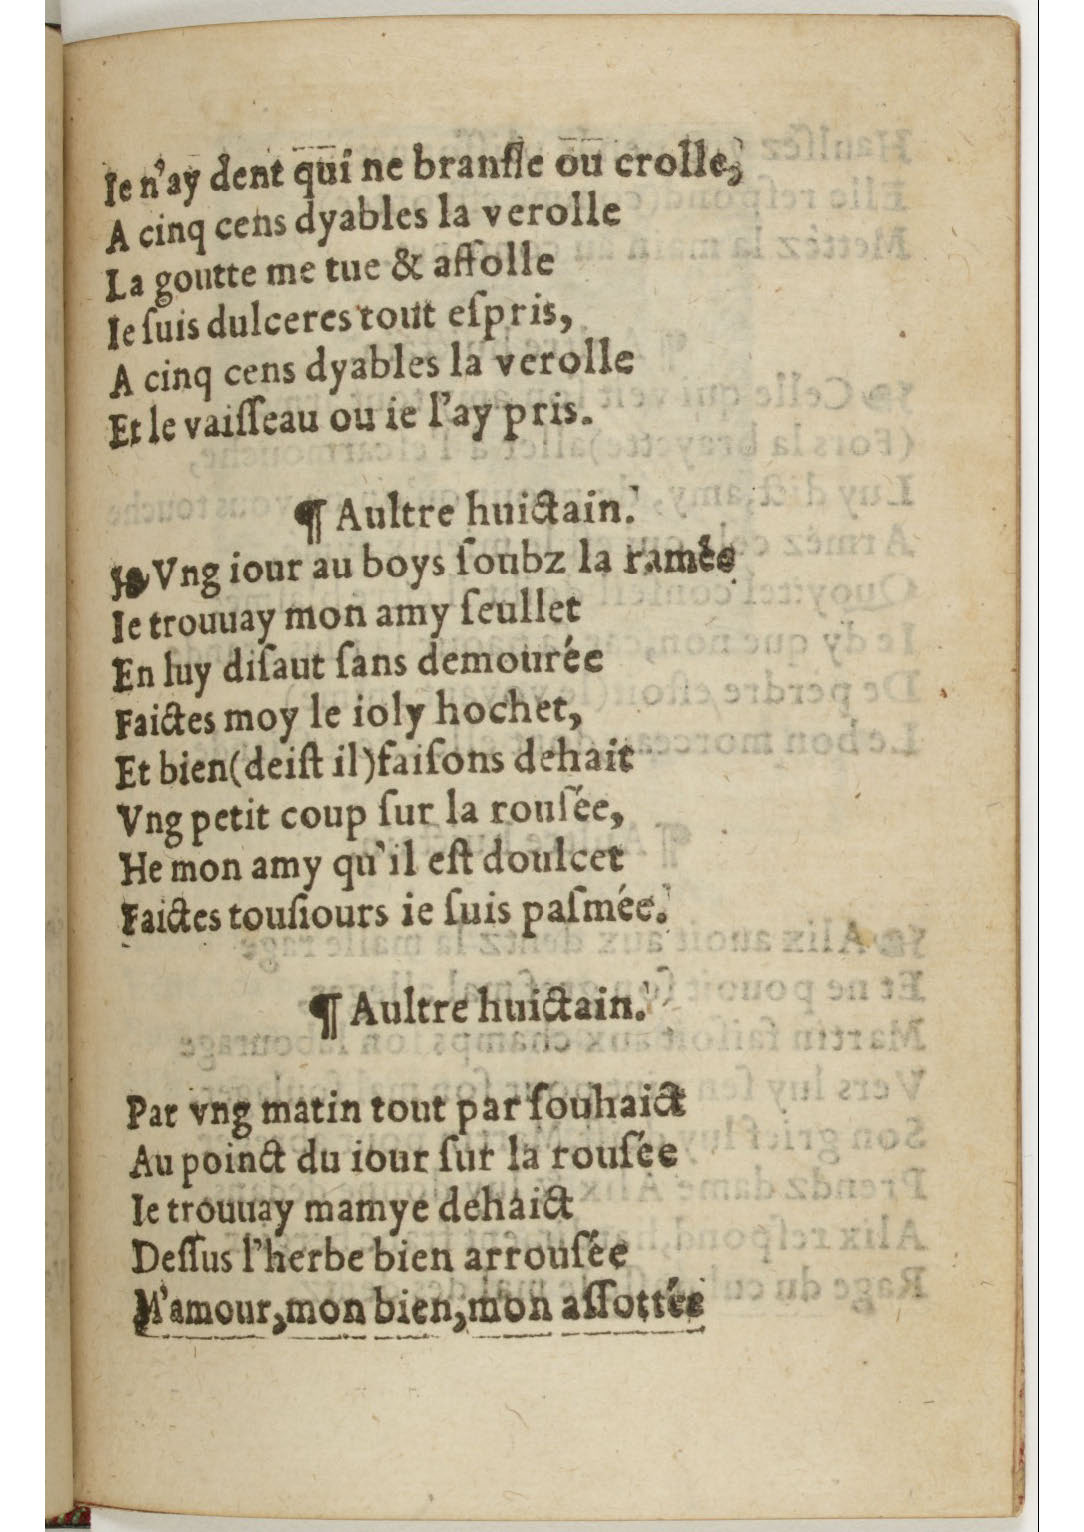 Ie n'ay dent qui ne branſle ou crolle,
A cinq cens dyables la verolle
La goutte me tue & affolle
Ie ſuis dulceres tout eſpris,
A cinq cens dyables la verolle
Et le vaiſſeau ou ie l'ay pris.
¶ Aultre huictain.
Vng iour au boys ſoubz la ramée
Ie trouuay mon amy ſeullet
En luy diſaut ſans demourée
Faictes moy le ioly hochet,
Et bien(deiſt il)faiſons dehait
Vng petit coup ſur la rouſée,
He mon amy qu'il eſt doulcet
Faictes touſiours ie ſuis paſmée.
¶ Aultre huictain.
Par vng matin tout par ſouhaict
Au poinct du iour ſur la rouſée
Ie trouuay mamye dehaict
Deſſus l'herbe bien arrouſée
M'amour,mon bien,mon aſſottée